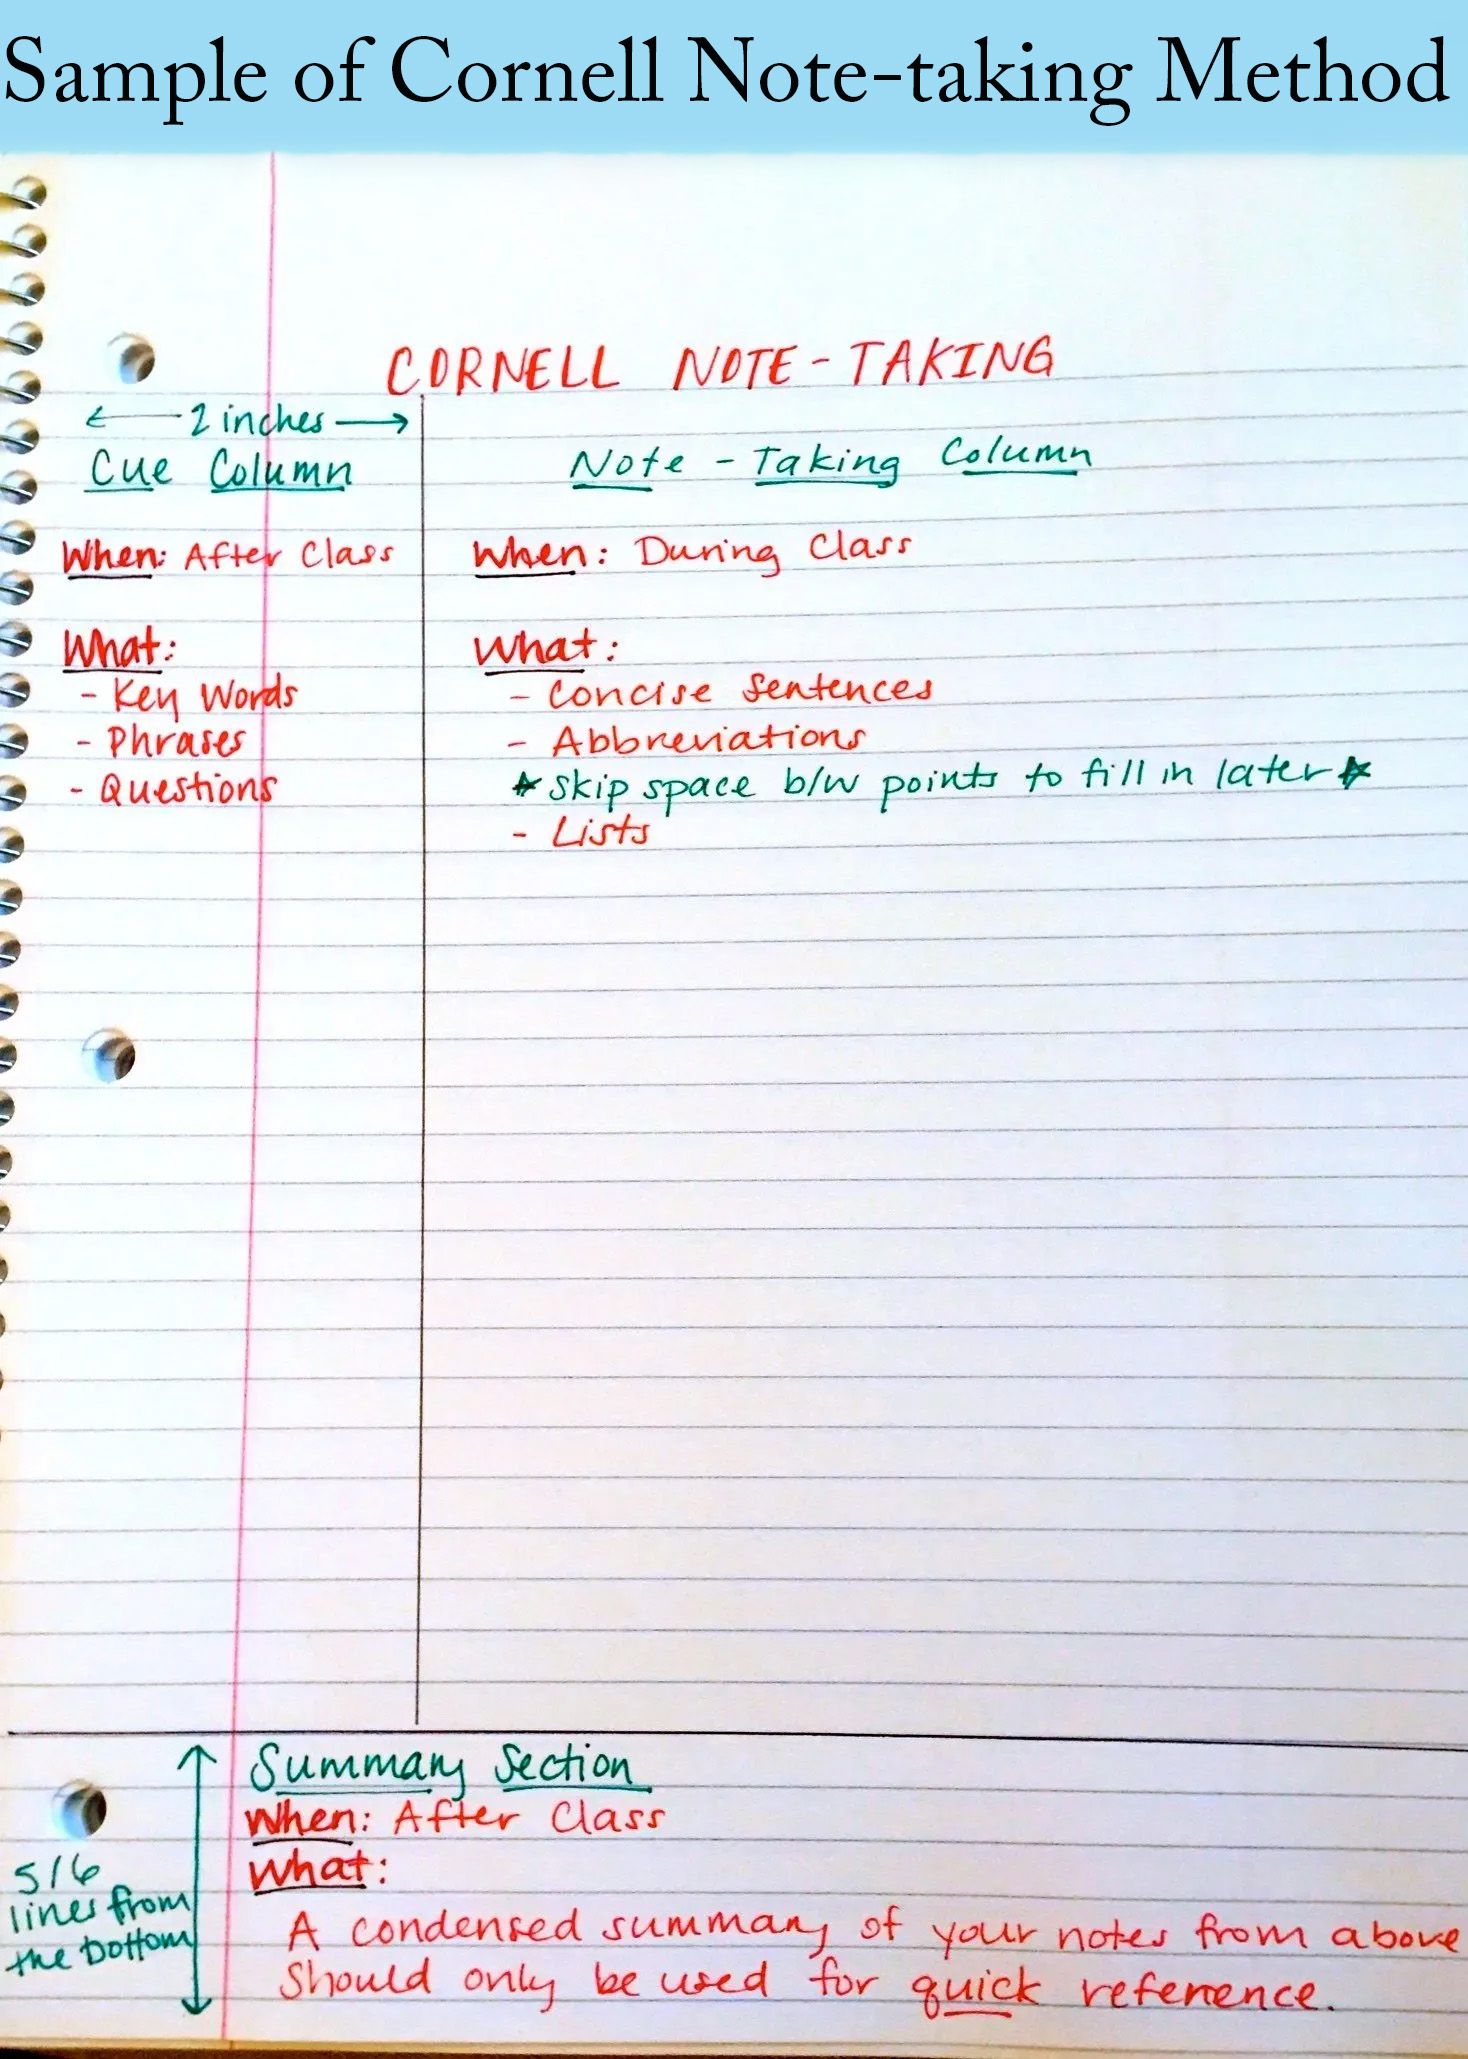 Sample of Cornell Note-taking Method
CORNELL NOTE-TAKING
← 2 inches →
Cue Column
When: After Class
What:
- Key Words
- Phrases
- Questions
Note-Taking Column
When: During Class
What:
- Concise Sentences
- Abbreviations
★ Skip space b/w points to fill in later ★
- Lists
Summary Section
When: After Class
What:
A condensed summary of your notes from above
Should only be used for quick reference.
5/6
lines from
the bottom